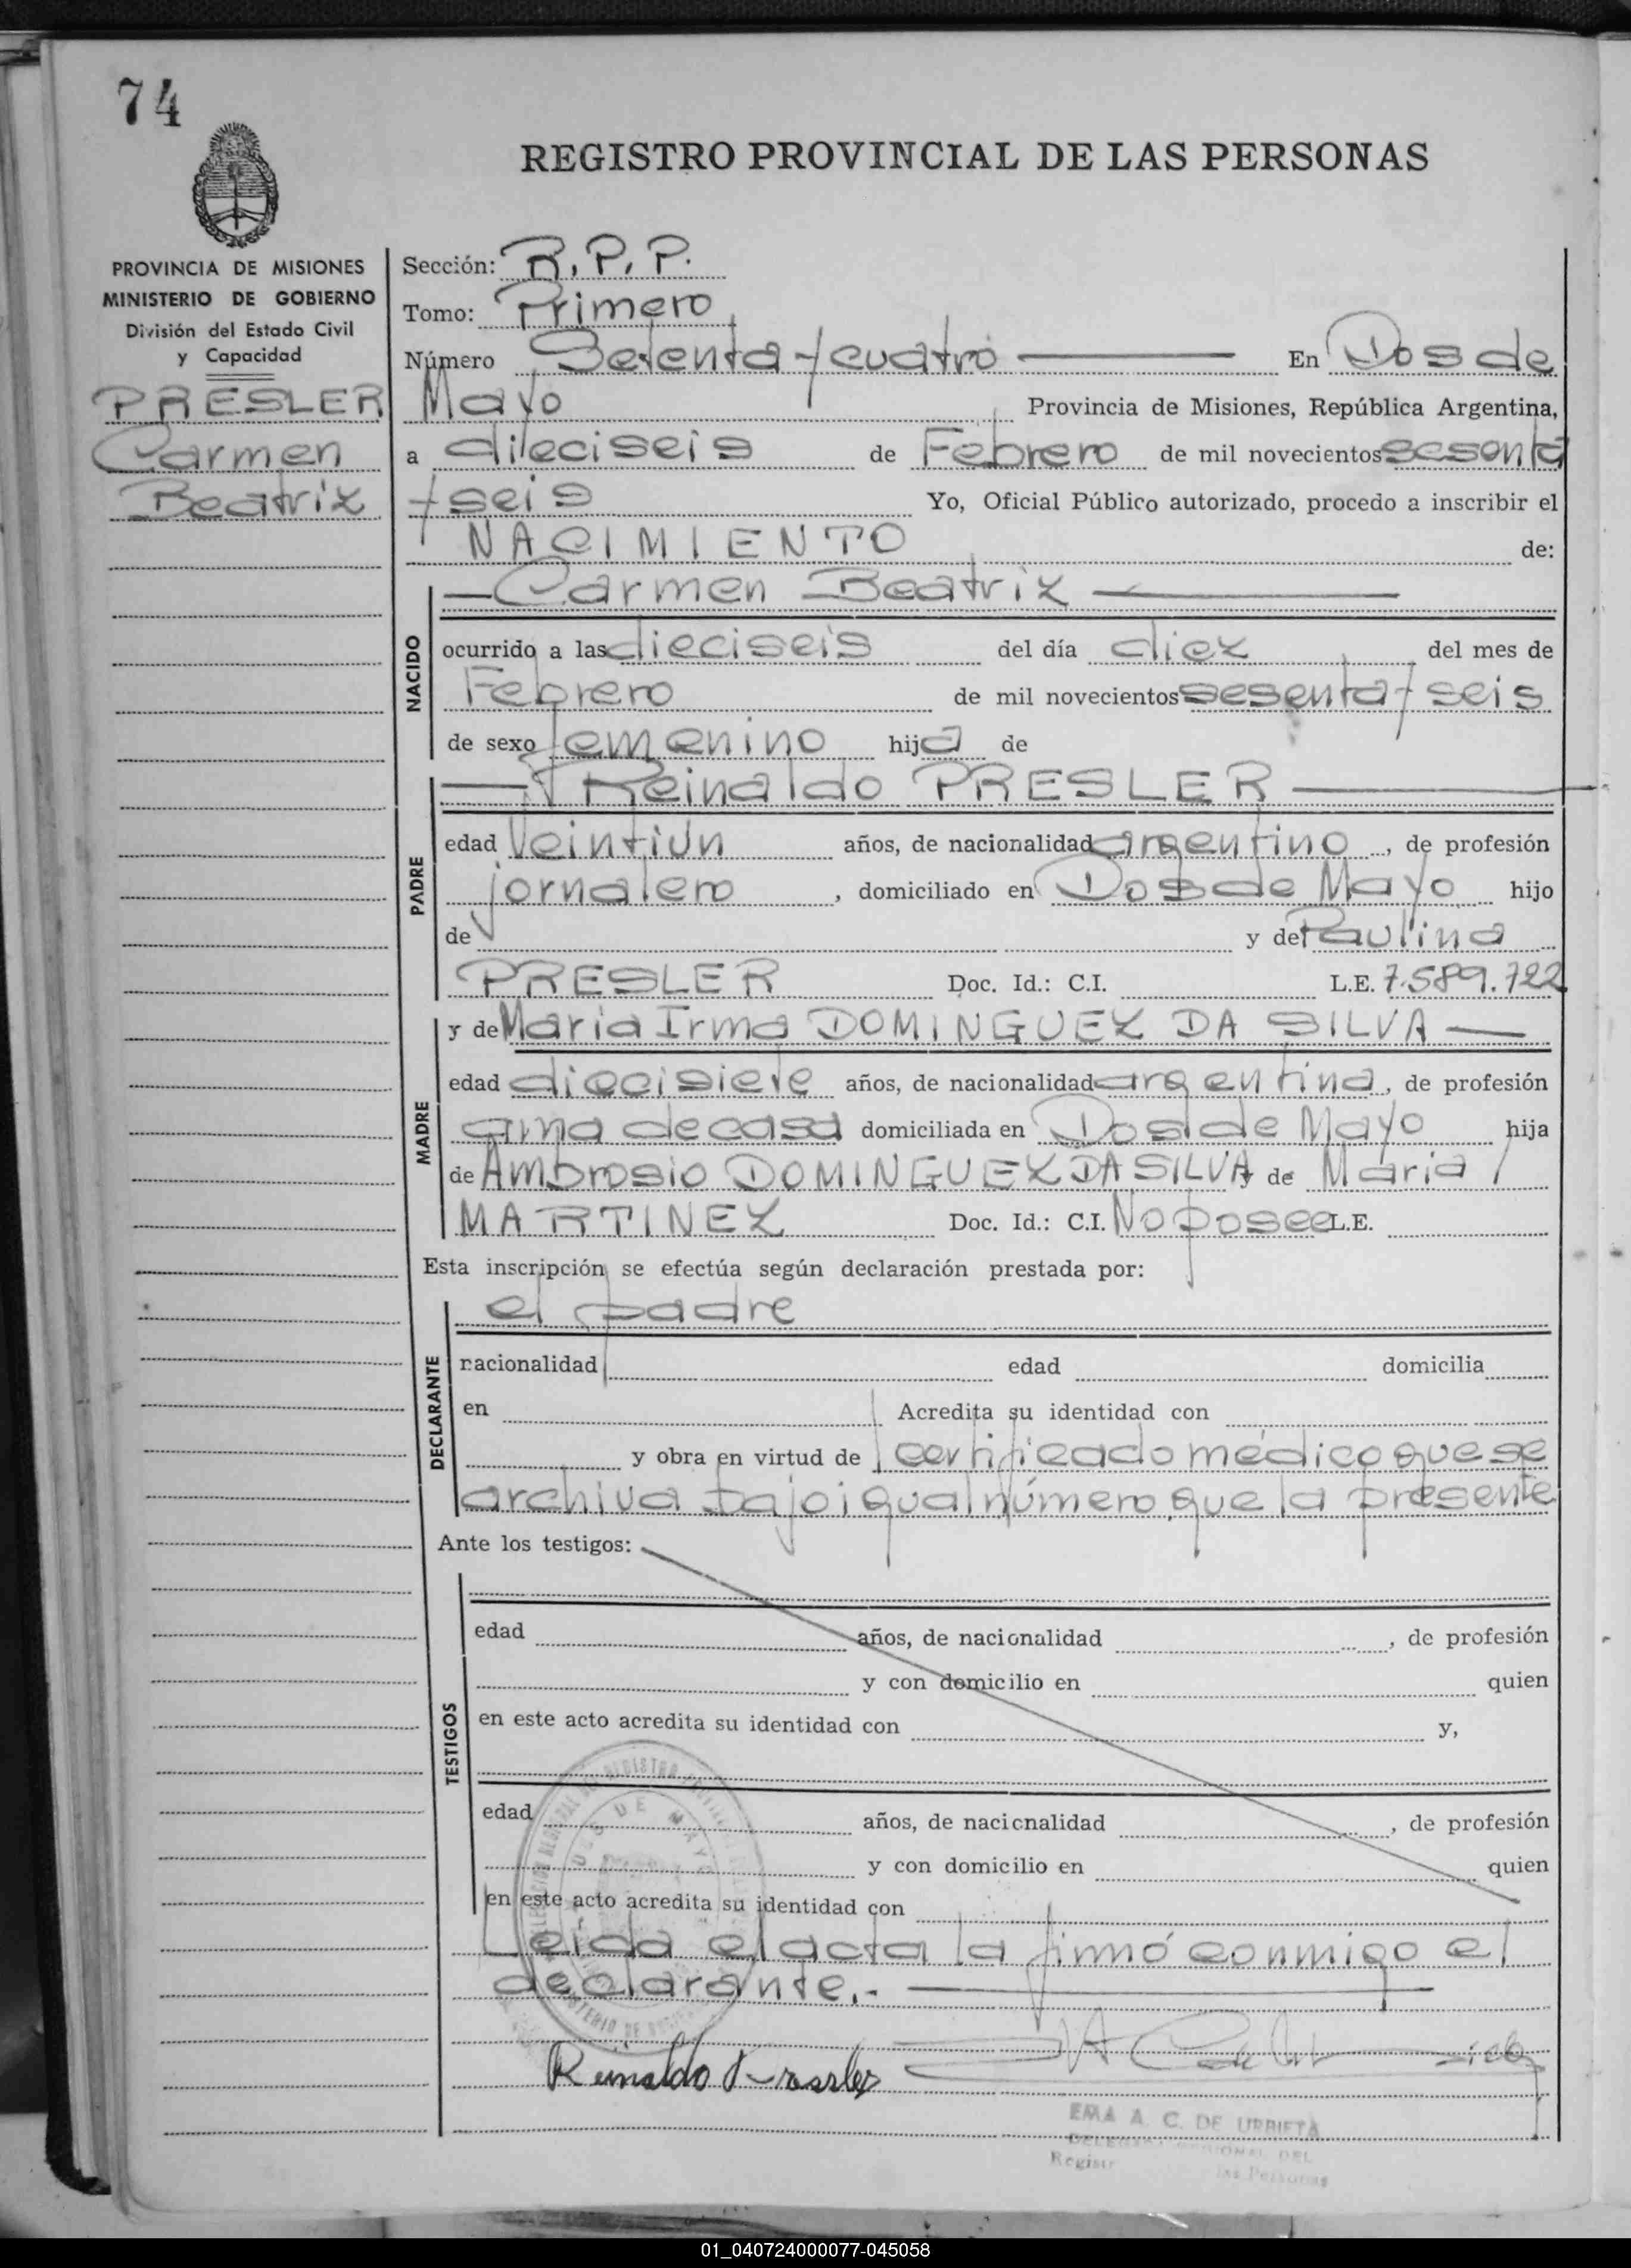 74
REGISTRO PROVINCIAL DE LAS PERSONAS
PROVINCIA DE MISIONES
MINISTERIO DE GOBIERNO
División del Estado Civil
y Capacidad
PRESLER
Carmen
Beatriz
Sección: R. P. P.
Tomo: Primero
Número Setenta y cuatro En Dos de
Mayo Provincia de Misiones, República Argentina,
a dieciseis de Febrero de mil novecientos sesenta
y seis Yo, Oficial Público autorizado, procedo a inscribir el
NACIMIENTO de:
Carmen Beatriz
NACIDO
ocurrido a las dieciseis del día diez del mes de
Febrero de mil novecientos sesenta y seis
de sexo femenino hija de
Reinaldo PRESLER
PADRE
edad Veintiún años, de nacionalidad argentino, de profesión
jornalero, domiciliado en Dos de Mayo hijo
de y de Paulina
PRESLER Doc. Id.: C.I. L.E. 7.589.722
MADRE
y de Maria Irma DOMINGUEZ DA SILVA
edad diecisiete años, de nacionalidad argentina, de profesión
ama de casa domiciliada en Dos de Mayo hija
de Ambrosio DOMINGUEZ DA SILVA y de Maria
MARTINEZ Doc. Id.: C.I. No posee L.E.
Esta inscripción se efectúa según declaración prestada por:
DECLARANTE
el padre
nacionalidad edad domicilia
en Acredita su identidad con
y obra en virtud de certificado médico que se
archiva bajo igual número que la presente
Ante los testigos:
TESTIGOS
edad años, de nacionalidad , de profesión
y con domicilio en quien
en este acto acredita su identidad con y,
edad años, de nacionalidad , de profesión
y con domicilio en quien
en este acto acredita su identidad con
Leida el acta la firmó conmigo el
declarante.-
DOS DE MAYO
Reinaldo
EMA A. C. DE URRIETA
Registr las Personas
01_040724000077-045058